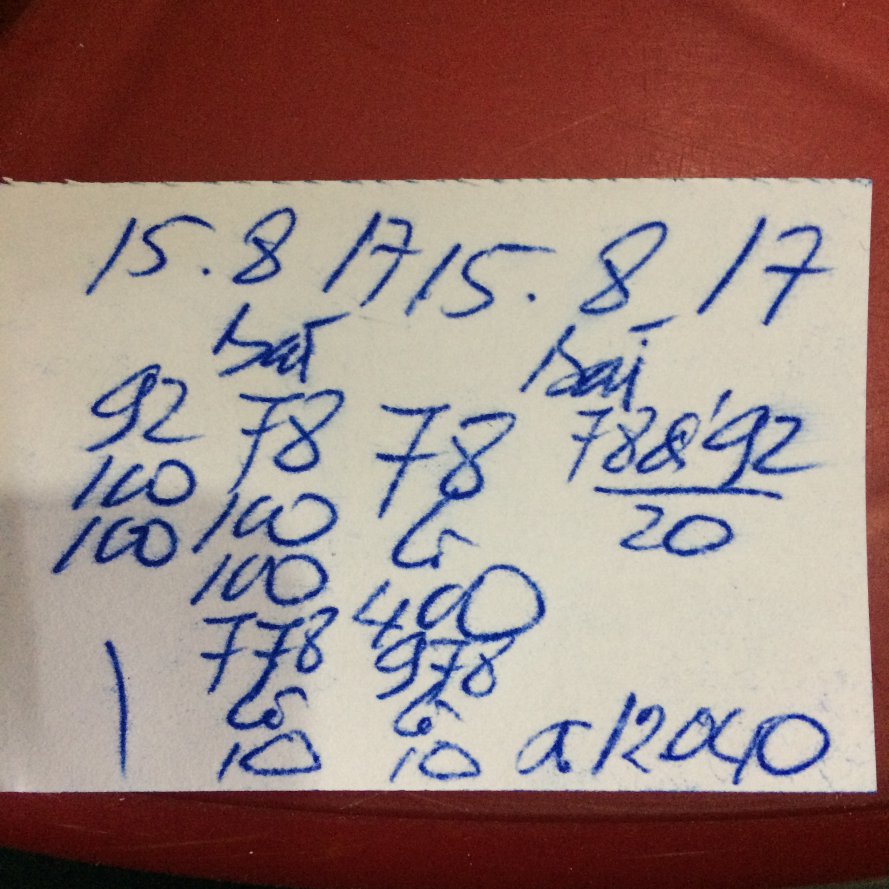 15.8 17 15.8 17
Bai Bai
92 78 78 78 & 92
100 100 Lô 20
100 100 400
778 978
Lô Lô
10 10 a 12040